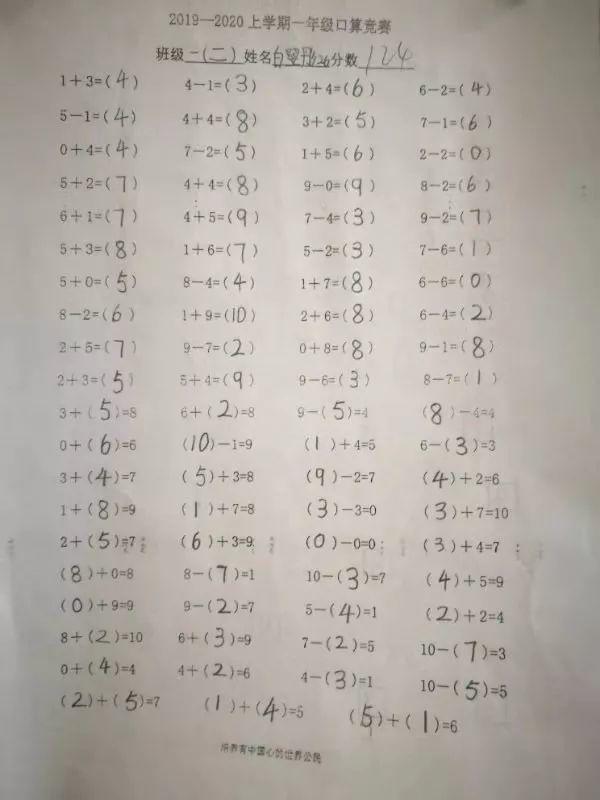 2019—2020上学期一年级口算竞赛
班级 一(二) 姓名 白 26 分数 124
1+3=(4) 4-1=(3) 2+4=(6) 6-2=(4)
5-1=(4) 4+4=(8) 3+2=(5) 7-1=(6)
0+4=(4) 7-2=(5) 1+5=(6) 2-2=(0)
5+2=(7) 4+4=(8) 9-0=(9) 8-2=(6)
6+1=(7) 4+5=(9) 7-4=(3) 9-2=(7)
5+3=(8) 1+6=(7) 5-2=(3) 7-6=(1)
5+0=(5) 8-4=(4) 1+7=(8) 6-6=(0)
8-2=(6) 1+9=(10) 2+6=(8) 6-4=(2)
2+5=(7) 9-7=(2) 0+8=(8) 9-1=(8)
2+3=(5) 5+4=(9) 9-6=(3) 8-7=(1)
3+(5)=8 6+(2)=8 9-(5)=4 (8)-4=4
0+(6)=6 (10)-1=9 (1)+4=5 6-(3)=3
3+(4)=7 (5)+3=8 (9)-2=7 (4)+2=6
1+(8)=9 (1)+7=8 (3)-3=0 (3)+7=10
2+(5)=7 (6)+3=9 (0)-0=0 (3)+4=7
(8)+0=8 8-(7)=1 10-(3)=7 (4)+5=9
(0)+9=9 9-(2)=7 5-(4)=1 (2)+2=4
8+(2)=10 6+(3)=9 7-(2)=5 10-(7)=3
0+(4)=4 4+(2)=6 4-(3)=1 10-(5)=5
(2)+(5)=7 (1)+(4)=5 (5)+(1)=6
培养有中国心的世界公民